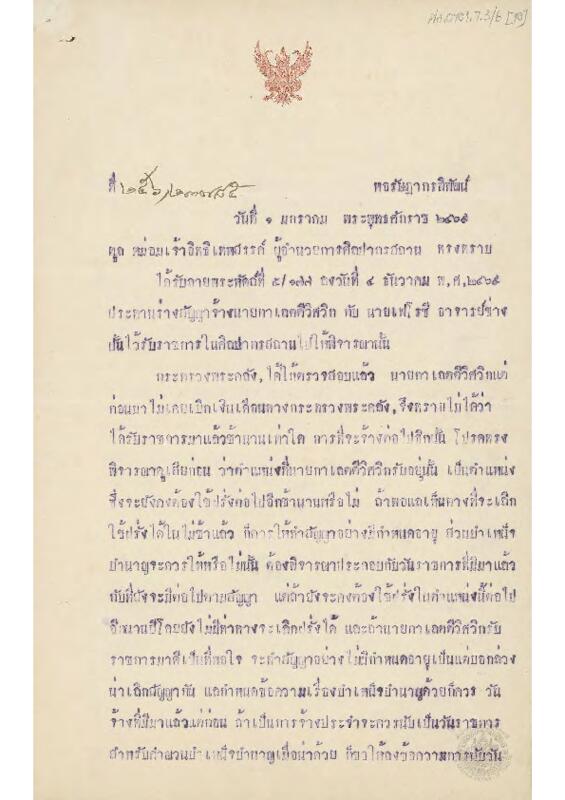 ศธ ๐๗๐๑.๗.๓/๖ [๑๐]
ที่
หอรัษฎากรพิพัฒน์
วันที่ ๑ มกราคม พระพุทธศักราช ๒๔๖๙
ทูล หม่อมเจ้าอิทธิเทพสรรค์ ผู้อำนวยการศิลปากรสถาน ทรงทราบ
ได้รับลายพระหัตถ์ที่ ๕/๑๗๗ ลงวันที่ ๔ ธันวาคม พ,ศ,๒๔๖๙
ประทานร่างสัญญาจ้างนายกาเลตตีวิศวิก กับ นายเฟโรซี อาจารย์ช่าง
ปั้นไว้รับราชการในศิลปากรสถานไปให้พิจารณานั้น
กระทรวงพระคลัง,ได้ให้ตรวจสอบแล้ว นายกาเลตตีวิศวิกแต่
ก่อนมาไม่เคยเบิกเงินเดือนทางกระทรวงพระคลัง,จึงทราบไม่ได้ว่า
ได้รับราชการมาแล้วช้านานเท่าใด การที่จะจ้างต่อไปอีกนั้น โปรดทรง
พิจารณาดูเสียก่อน ว่าตำแหน่งที่นายกาเลตตีวิศวิกรับอยู่นั้น เป็นตำแหน่ง
ซึ่งจะยังคงต้องใช้ฝรั่งต่อไปอีกช้านานหรือไม่ ถ้าพอแลเห็นทางที่จะเลิก
ใช้ฝรั่งได้ในไม่ช้าแล้ว ก็ควรให้ทำสัญญาอย่างมีกำหนดอายุ ส่วนบำเหน็จ
บำนาญจะควรให้หรือไม่นั้น ต้องพิจารณาประกอบกับวันราชการที่มีมาแล้ว
กับที่ยังจะมีต่อไปตามสัญญา แต่ถ้ายังจะคงต้องใช้ฝรั่งในตำแหน่งนี้ต่อไป
อีกนานปีโดยยังไม่มีท่าทางจะเลิกฝรั่งได้ และถ้านายกาเลตตีวิศวิกรับ
ราชการมาดีเป็นที่พอใจ จะทำสัญญาอย่างไม่มีกำหนดอายุเป็นแต่บอกล่วง
น่าเลิกสัญญากัน แลกำหนดข้อความเรื่องบำเหน็จบำนาญด้วยก็ควร วัน
จ้างที่มีมาแล้วแต่ก่อน ถ้าเป็นการจ้างประจำจะควรนับเป็นวันราชการ
สำหรับคำนวณบำเหน็จบำนาญเมื่อน่าด้วย ก็ขอให้ลงข้อความการนับวัน